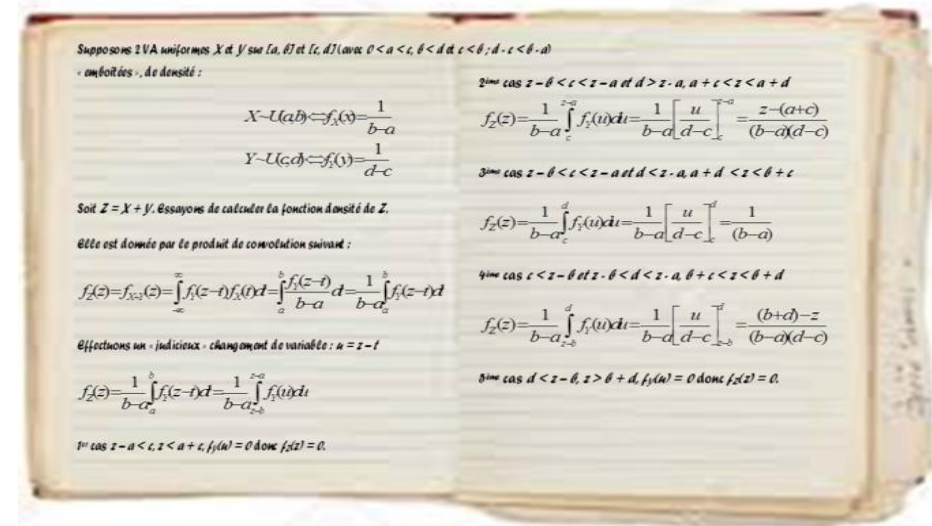 Supposons 2 VA uniformes X et Y sur [a, b] et [c, d] (avec 0 < a < c, b < d et c < b ; d - c < b - a)
« emboitées », de densité :
X~U(a,b)⇔f_X(x)=1/(b−a)
Y~U(c,d)⇔f_Y(y)=1/(d−c)
Soit Z = X + Y. Essayons de calculer la fonction densité de Z.
Elle est donnée par le produit de convolution suivant :
f_Z(z)=f_{X+Y}(z)=∫_{-∞}^{∞} f_Y(z−t)f_X(t)dt=∫_a^b f_Y(z−t)/(b−a) dt=1/(b−a) ∫_a^b f_Y(z−t)dt
Effectuons un « judicieux » changement de variable : u = z – t
f_Z(z)=1/(b−a) ∫_a^b f_Y(z−t)dt=1/(b−a) ∫_{z−b}^{z−a} f_Y(u)du
1er cas z – a < c, z < a + c, f_Y(u) = 0 donc f_Z(z) = 0.
2ième cas z – b < c < z – a et d > z - a, a + c < z < a + d
f_Z(z)=1/(b−a) ∫_c^{z−a} f_Y(u)du=1/(b−a) [u/(d−c)]_c^{z−a}=(z−(a+c))/((b−a)(d−c))
3ième cas z – b < c < z – a et d < z - a, a + d < z < b + c
f_Z(z)=1/(b−a) ∫_c^d f_Y(u)du=1/(b−a) [u/(d−c)]_c^d=1/(b−a)
4ième cas c < z – b et z - b < d < z - a, b + c < z < b + d
f_Z(z)=1/(b−a) ∫_{z−b}^d f_Y(u)du=1/(b−a) [u/(d−c)]_{z−b}^d=((b+d)−z)/((b−a)(d−c))
5ième cas d < z – b, z > b + d, f_Y(u) = 0 donc f_Z(z) = 0.